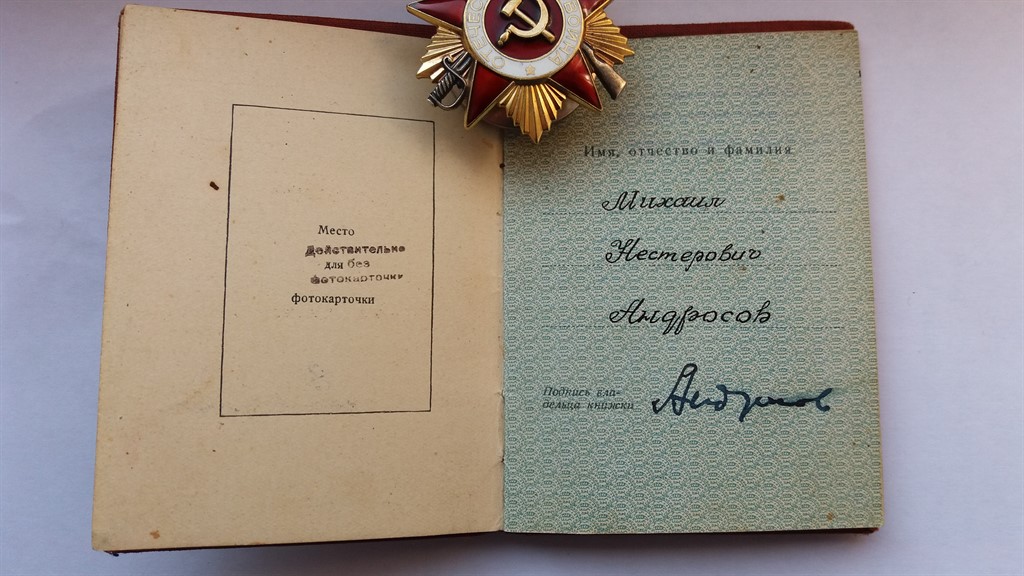 Место
Действительно
для без
фотокарточки
фотокарточки
Имя, отчество и фамилия
Михаил
Нестерович
Андросов
Подпись вла-
дельца книжки
Андросов